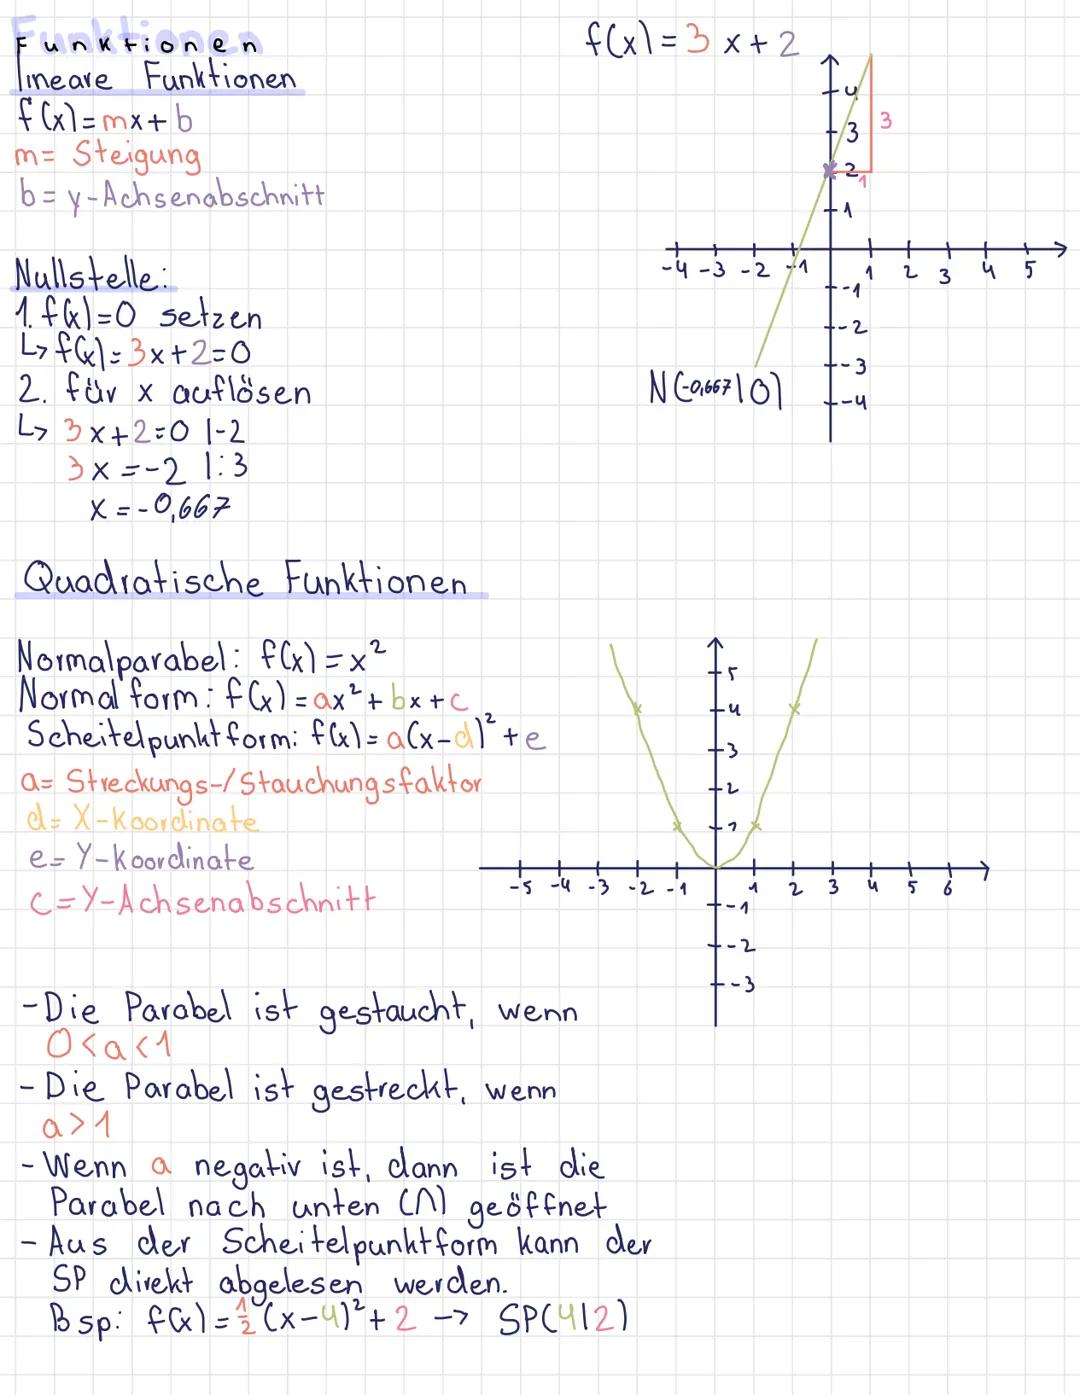 Funktionen
lineare Funktionen
f(x)=mx+b
m= Steigung
b= y-Achsenabschnitt
f(x)=3x+2
4
3
2
1
3
1
-4 -3 -2 -1 1 2 3 4 5
-1
-2
-3
-4
N(-0,667|0)
Nullstelle:
1. f(x)=0 setzen
↳ f(x)=3x+2=0
2. für x auflösen
↳ 3x+2=0 |-2
3x=-2 |:3
x=-0,667
Quadratische Funktionen
Normalparabel: f(x)=x²
Normalform: f(x)=ax²+bx+c
Scheitelpunktform: f(x)=a(x-d)²+e
a= Streckungs-/Stauchungsfaktor
d= X-Koordinate
e= Y-Koordinate
c=Y-Achsenabschnitt
5
4
3
2
1
-5 -4 -3 -2 -1 1 2 3 4 5 6
-1
-2
-3
-Die Parabel ist gestaucht, wenn
0<a<1
-Die Parabel ist gestreckt, wenn
a>1
-Wenn a negativ ist, dann ist die
Parabel nach unten (∩) geöffnet
-Aus der Scheitelpunktform kann der
SP direkt abgelesen werden.
Bsp: f(x)=½(x-4)²+2 → SP(4|2)